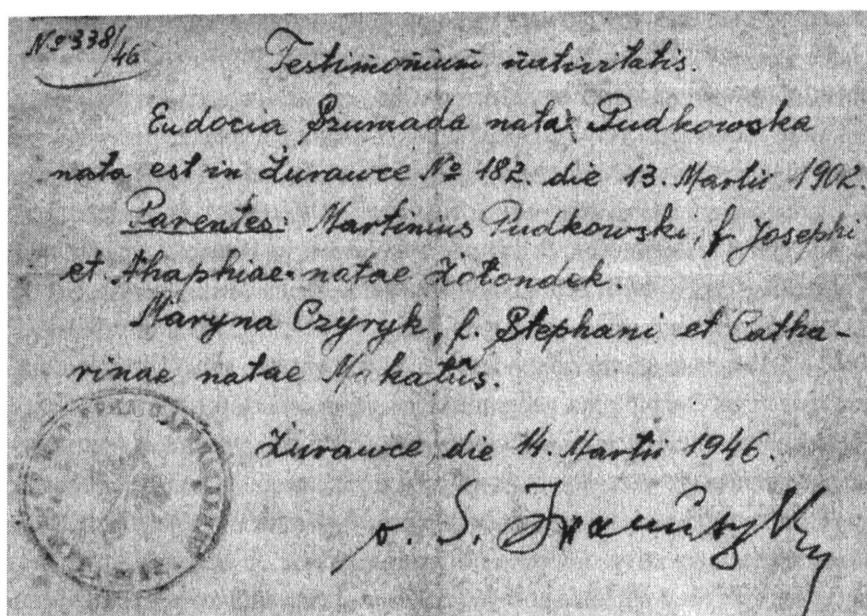 No 338/46
Testimonium nativitatis.
Eudocia Szumada nata Pudkowska
nata est in Żurawce No 182. die 13. Martii 1902
Parentes: Martinius Pudkowski, f. Josephi
et Ahaphiae natae Żołondek.
Maryna Czyryk, f. Stephani et Catha-
rinae natae Makatus.
Żurawce die 14. Martii 1946.
o. S.